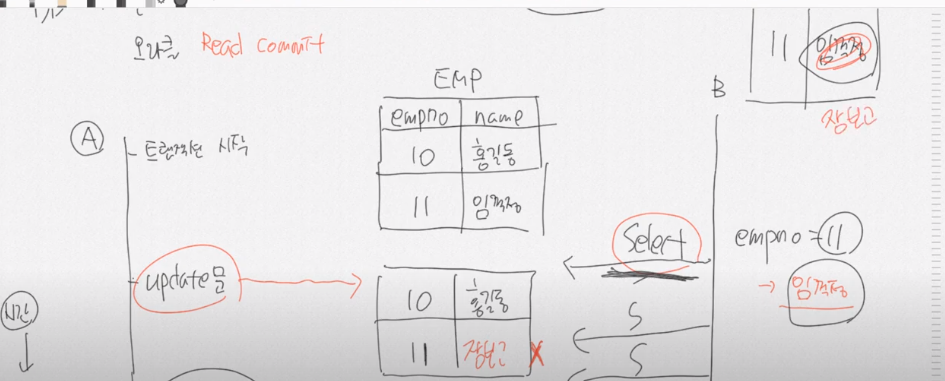 오라클 Read commit
EMP
empno name
10 홍길동
11 임꺽정
A
트랜잭션 시작
update문
시간
10 홍길동
11 장보고 X
B
11 임꺽정
장보고
Select
empno = 11
→ 임꺽정
S
S